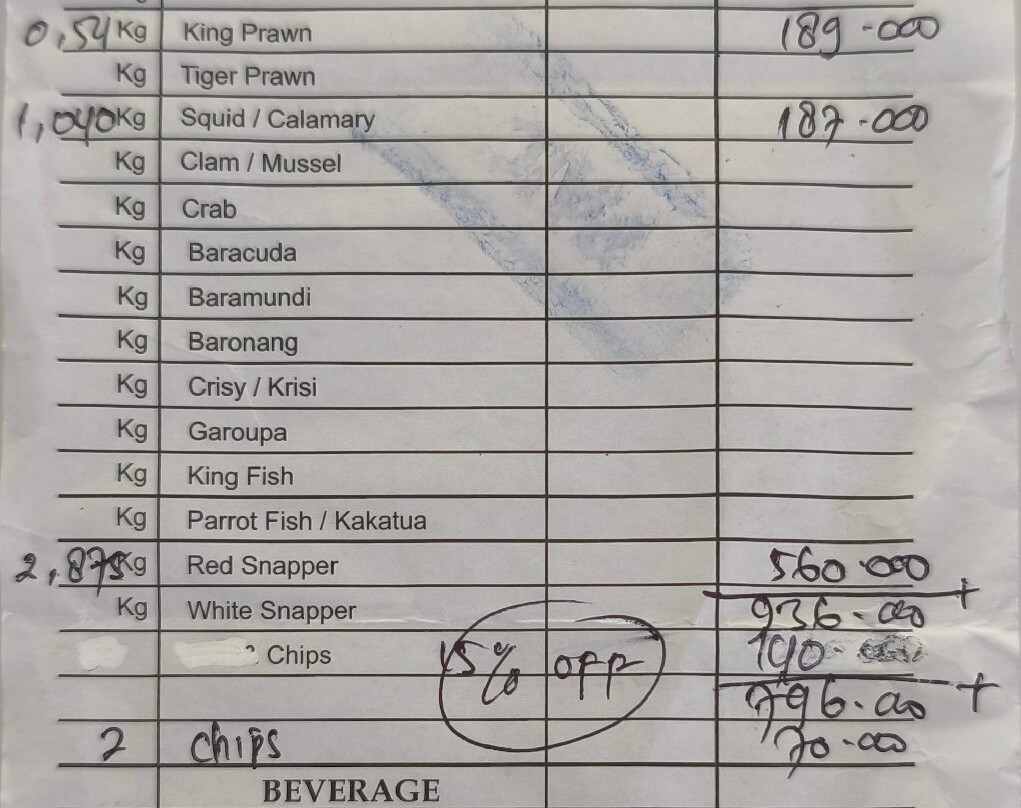 0,54 Kg King Prawn 189-000
Kg Tiger Prawn
1,040 Kg Squid / Calamary 187-000
Kg Clam / Mussel
Kg Crab
Kg Baracuda
Kg Baramundi
Kg Baronang
Kg Crisy / Krisi
Kg Garoupa
Kg King Fish
Kg Parrot Fish / Kakatua
2,875 Kg Red Snapper 560.000 +
Kg White Snapper 936.000
Chips 15% OFF 140
796.000 +
2 chips 70-000
BEVERAGE